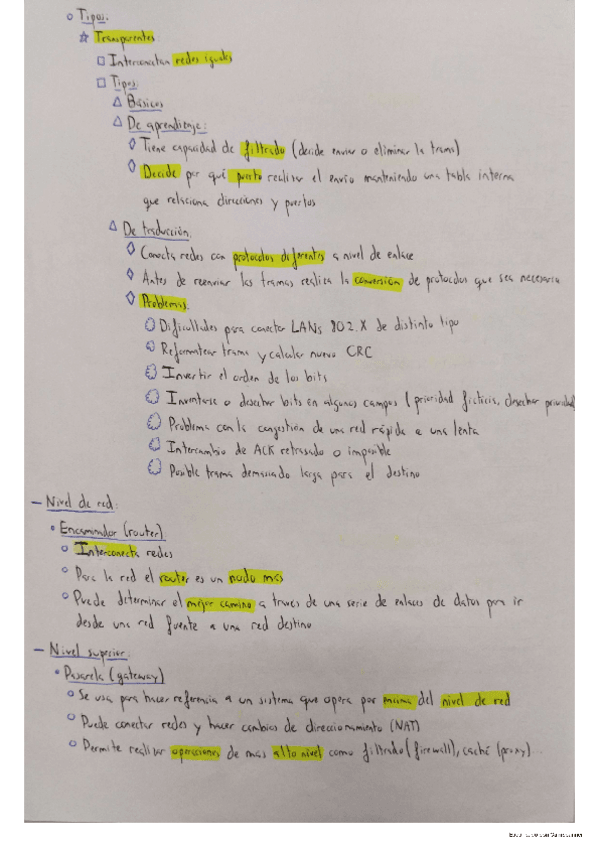 Tipos:
Transparentes
Interconectan redes iguales
Tipos:
Básicos
De aprendizaje:
Tiene capacidad de filtrado (decide enviar o eliminar la trama)
Decide por qué puerto realizar el envío manteniendo una tabla interna
que relaciona direcciones y puertos
De traducción:
Conecta redes con protocolos diferentes a nivel de enlace
Antes de reenviar las tramas realiza la conversión de protocolos que sea necesaria
Problemas:
Dificultades para conectar LANs 802.X de distinto tipo
Reformatear trama y calcular nuevo CRC
Invertir el orden de los bits
Inventarse o desechar bits en algunos campos (prioridad ficticia, desechar prioridad)
Problema con la congestión de una red rápida a una lenta
Intercambio de ACK retrasado o imposible
Posible trama demasiado larga para el destino
— Nivel de red:
• Encaminador (router)
Interconecta redes
Para la red el router es un nodo más
Puede determinar el mejor camino a través de una serie de enlaces de datos para ir
desde una red fuente a una red destino
— Nivel superior:
• Pasarela (gateway)
Se usa para hacer referencia a un sistema que opera por encima del nivel de red
Puede conectar redes y hacer cambios de direccionamiento (NAT)
Permite realizar operaciones de más alto nivel como filtrado (firewall), caché (proxy)